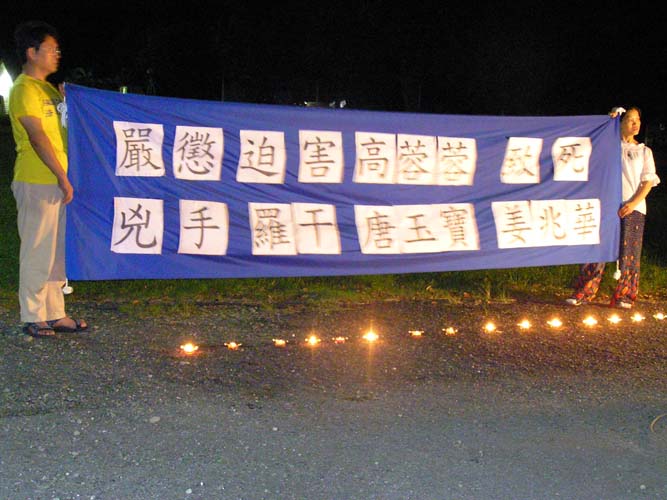 嚴懲迫害高蓉蓉致死
兇手羅干唐玉寶美兆華